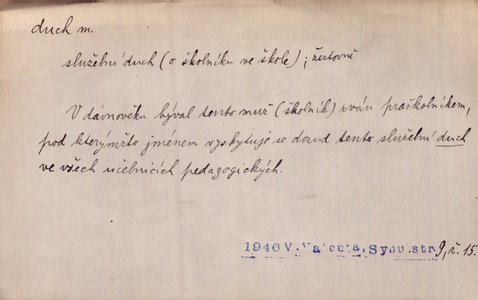 duch m.
služební duch (o školníku ve škole); žertovně
V dávnověku býval tento muž (školník) zván praškolníkem,
pod kterýmžto jménem vyskytuje se dosud tento služební duch
ve všech učebnicích pedagogických.
1946 V. Valenta, str. 9, ř. 15.